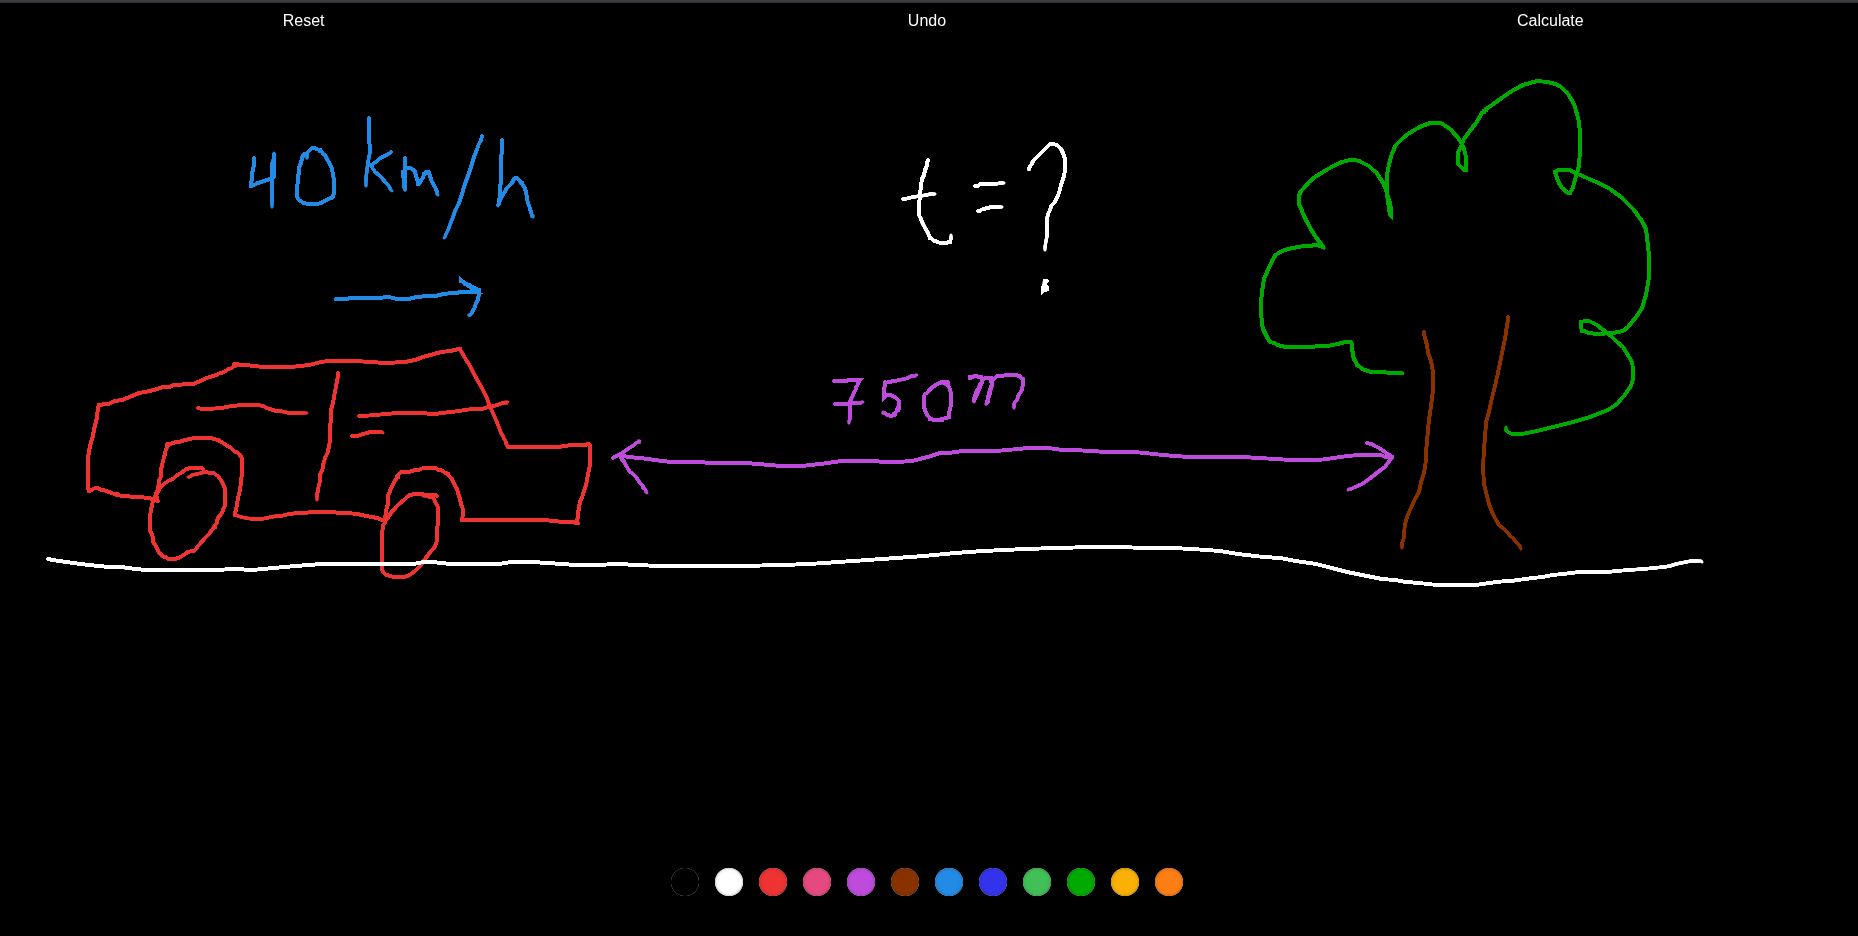 Reset
Undo
Calculate
40 km/h
t = ?
750m